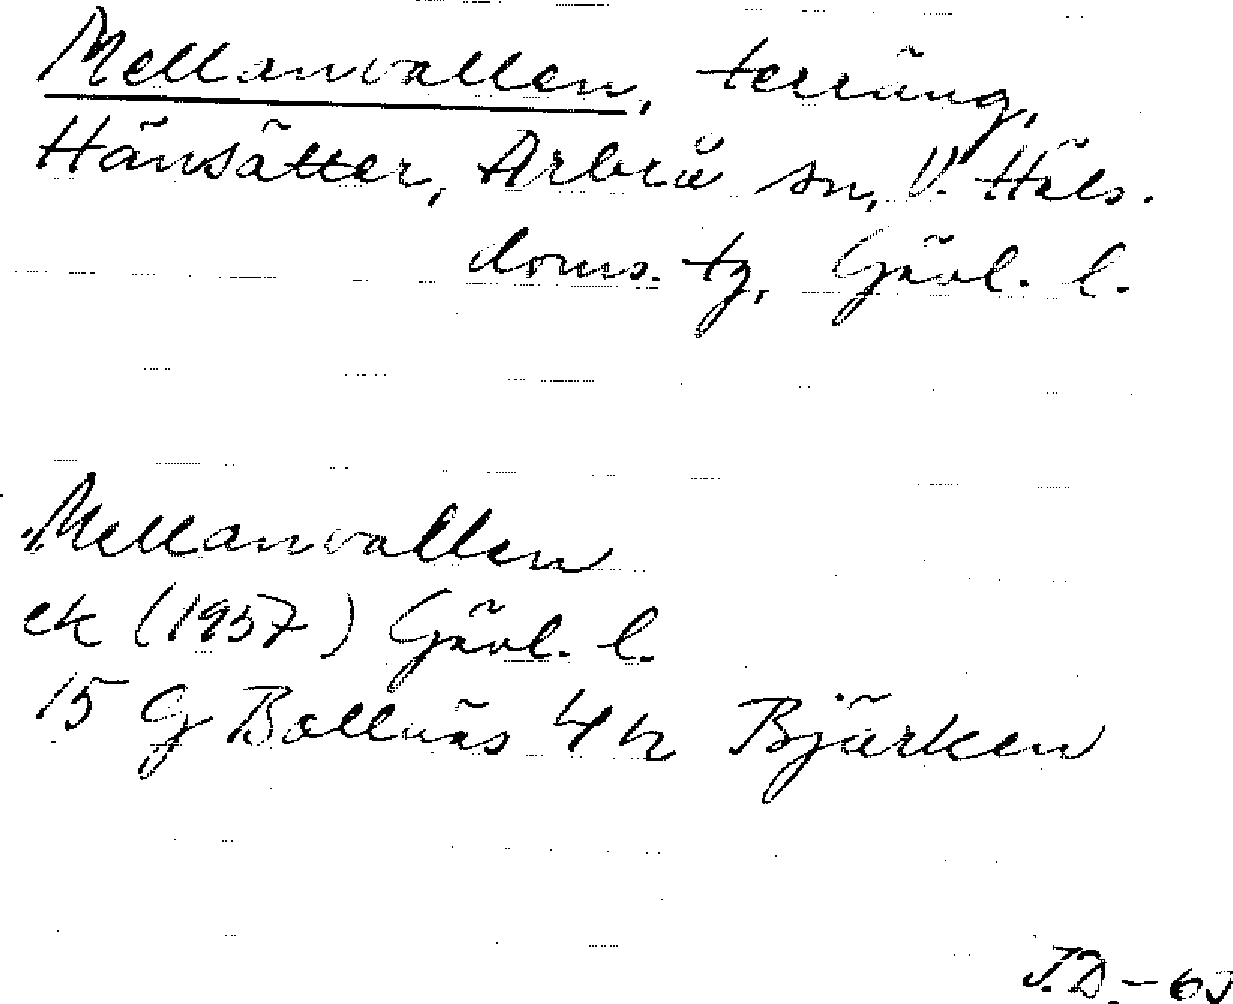 Mellanvallen, terräng,
Hänsätter, Arbrå sn, V. Häls.
doms. tg, Gävl. l.
Mellanvallen
ek (1957) Gävl. l.
15 G Bollnäs 4 h Björken
J.D. - 63